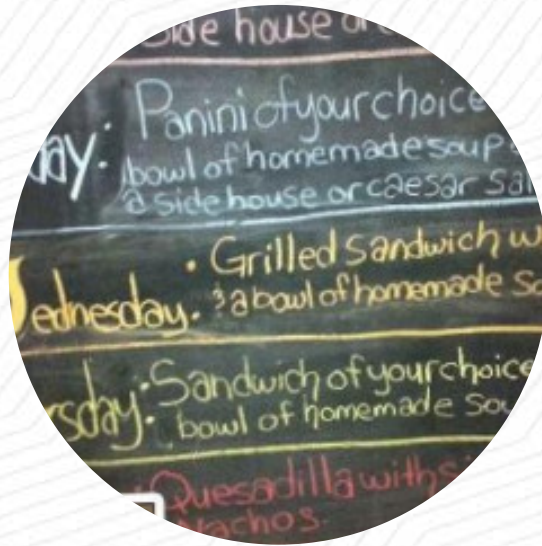 Side house or
ay: Panini of your choice
bowl of homemade soup
a side house or caesar sal
Wednesday. • Grilled sandwich w
& a bowl of homemade so
rsday: • Sandwich of your choice
bowl of homemade sou
• Quesadilla with si
Nachos.